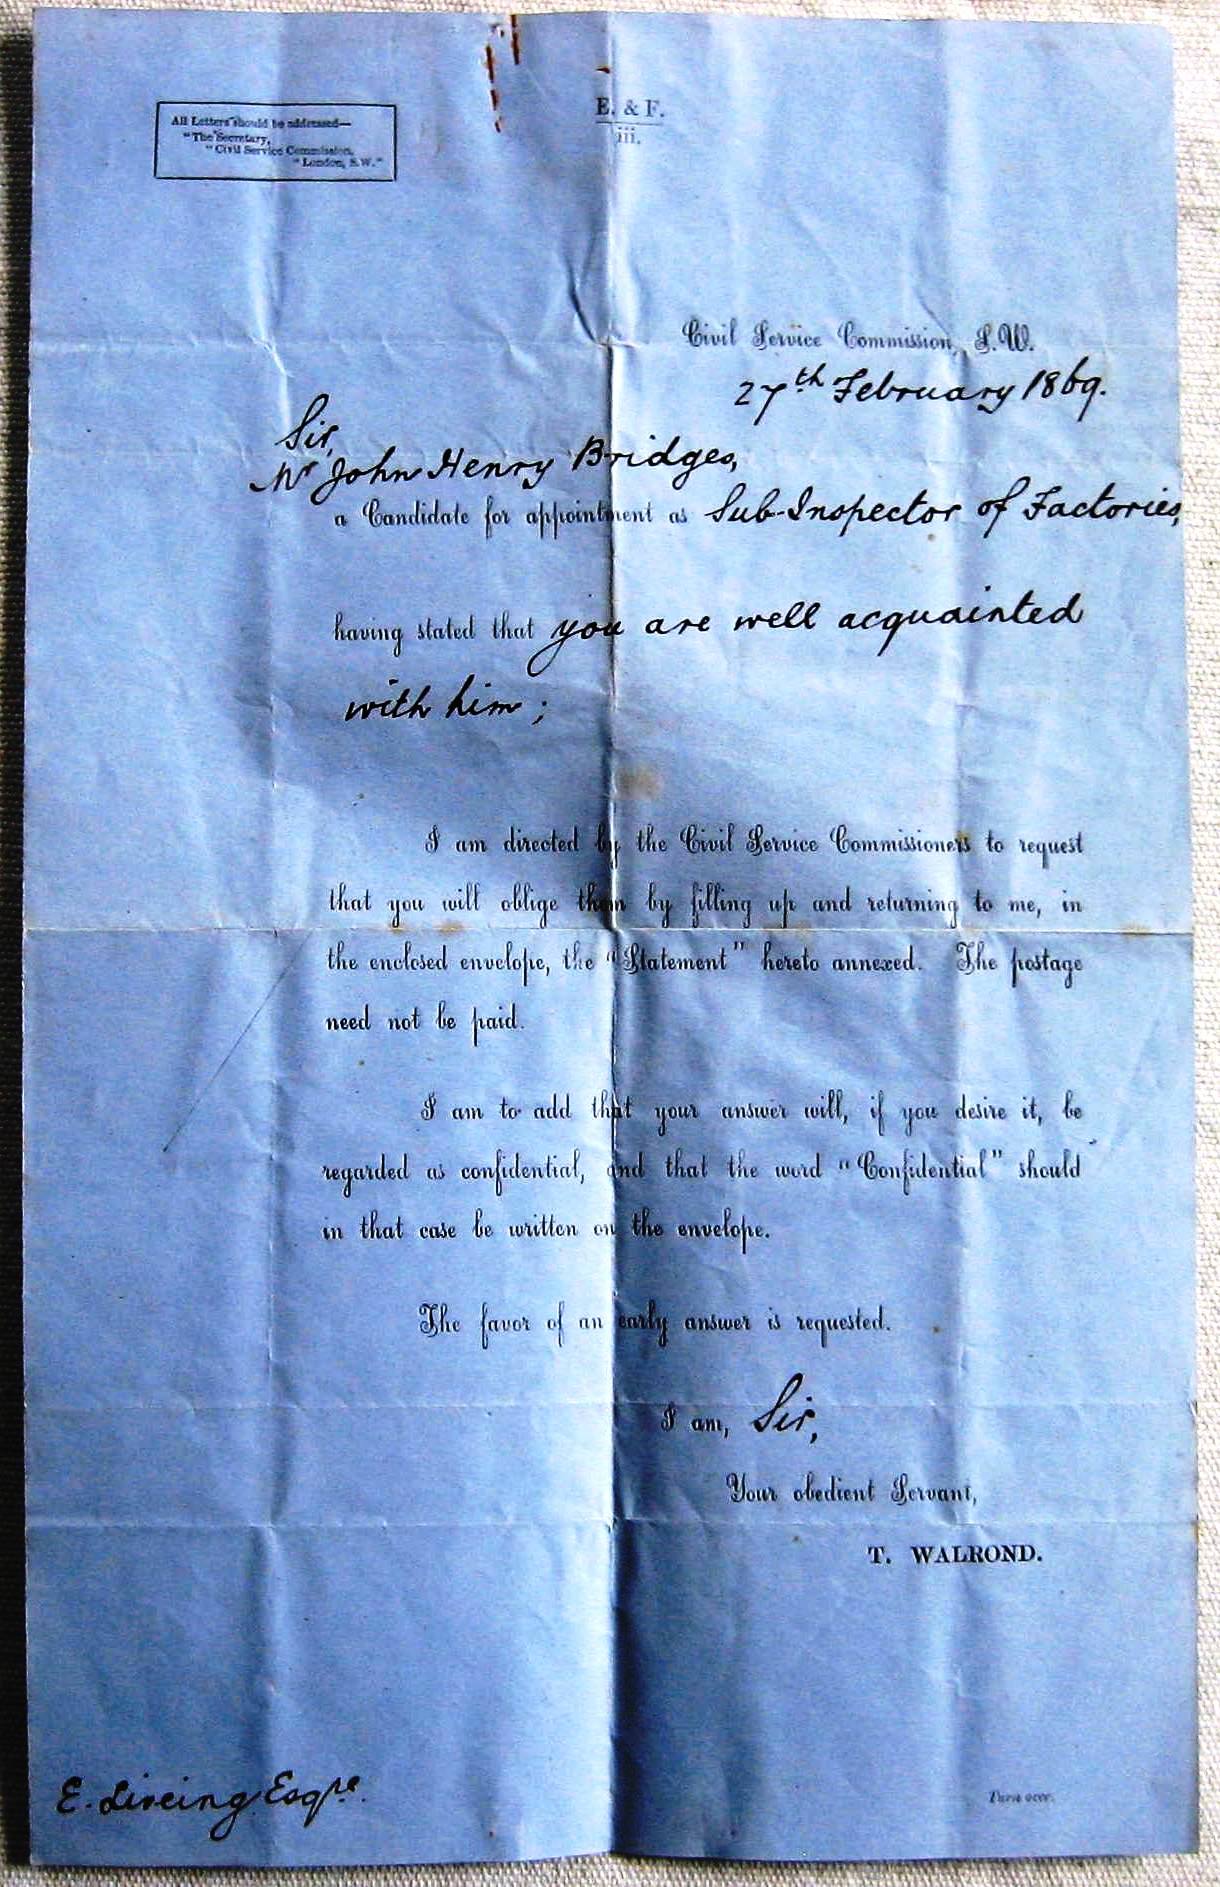 All Letters should be addressed—
"The Secretary,
"Civil Service Commission,
"London, S.W."
E. & F.
iii.
Civil Service Commission, S.W.
27th February 1869.
Sir,
Mr John Henry Bridges,
a Candidate for appointment as Sub-Inspector of Factories,
having stated that you are well acquainted
with him;
I am directed by the Civil Service Commissioners to request
that you will oblige them by filling up and returning to me, in
the enclosed envelope, the "Statement" hereto annexed. The postage
need not be paid.
I am to add that your answer will, if you desire it, be
regarded as confidential, and that the word "Confidential" should
in that case be written on the envelope.
The favor of an early answer is requested.
I am, Sir,
Your obedient Servant,
T. WALROND.
E. Liveing Esqre.
Turn over.